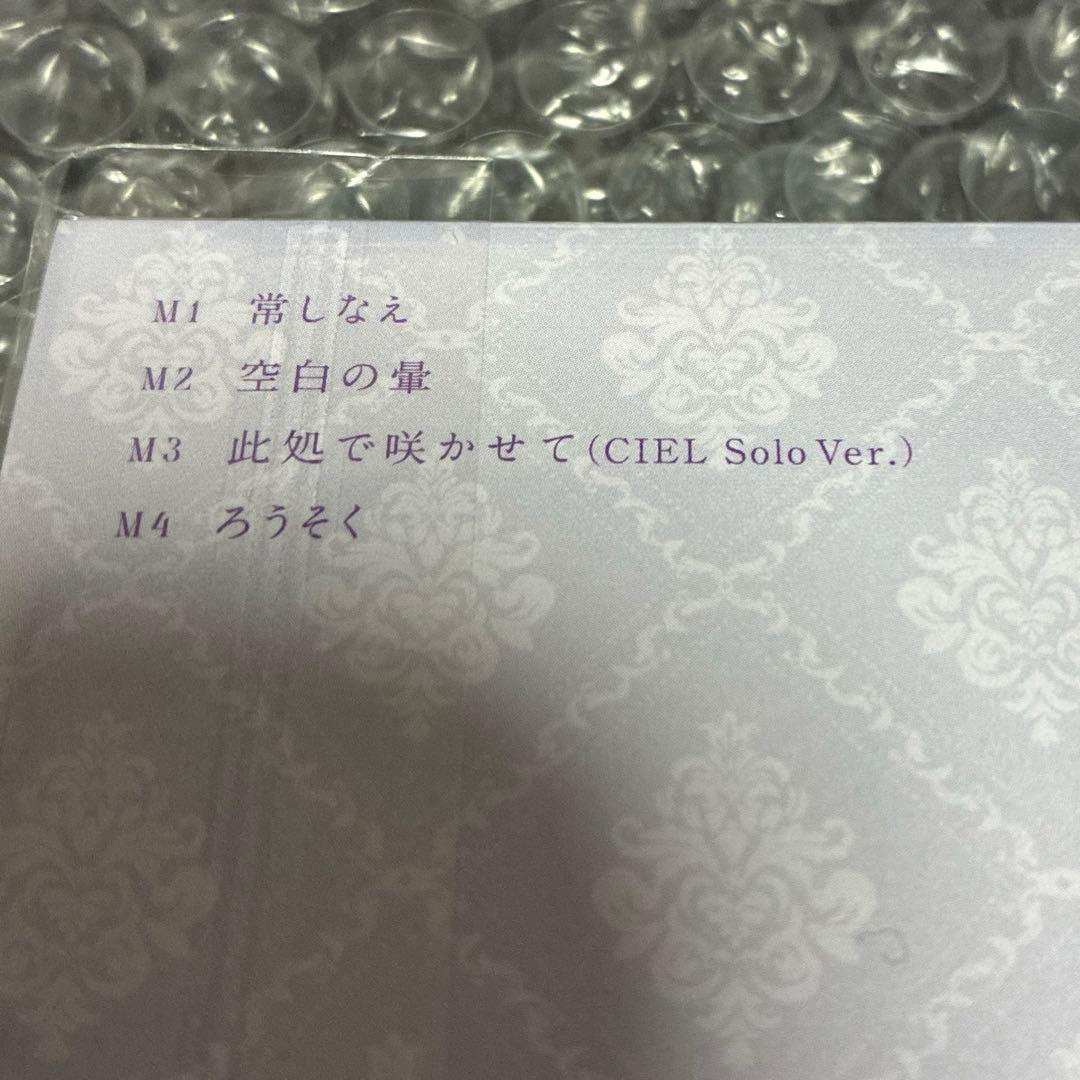 M1 常しなえ
M2 空白の暈
M3 此処で咲かせて(CIEL Solo Ver.)
M4 ろうそく